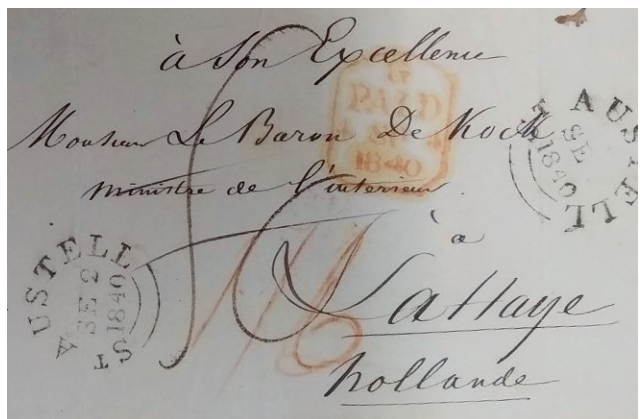 à Son Excellence
Monsieur Le Baron De Kock
ministre de l'interieur
à
La Haye
hollande
PAID
1840
ST AUSTELL
SE 2
1840
ST AUSTELL
SE
1840
1/6